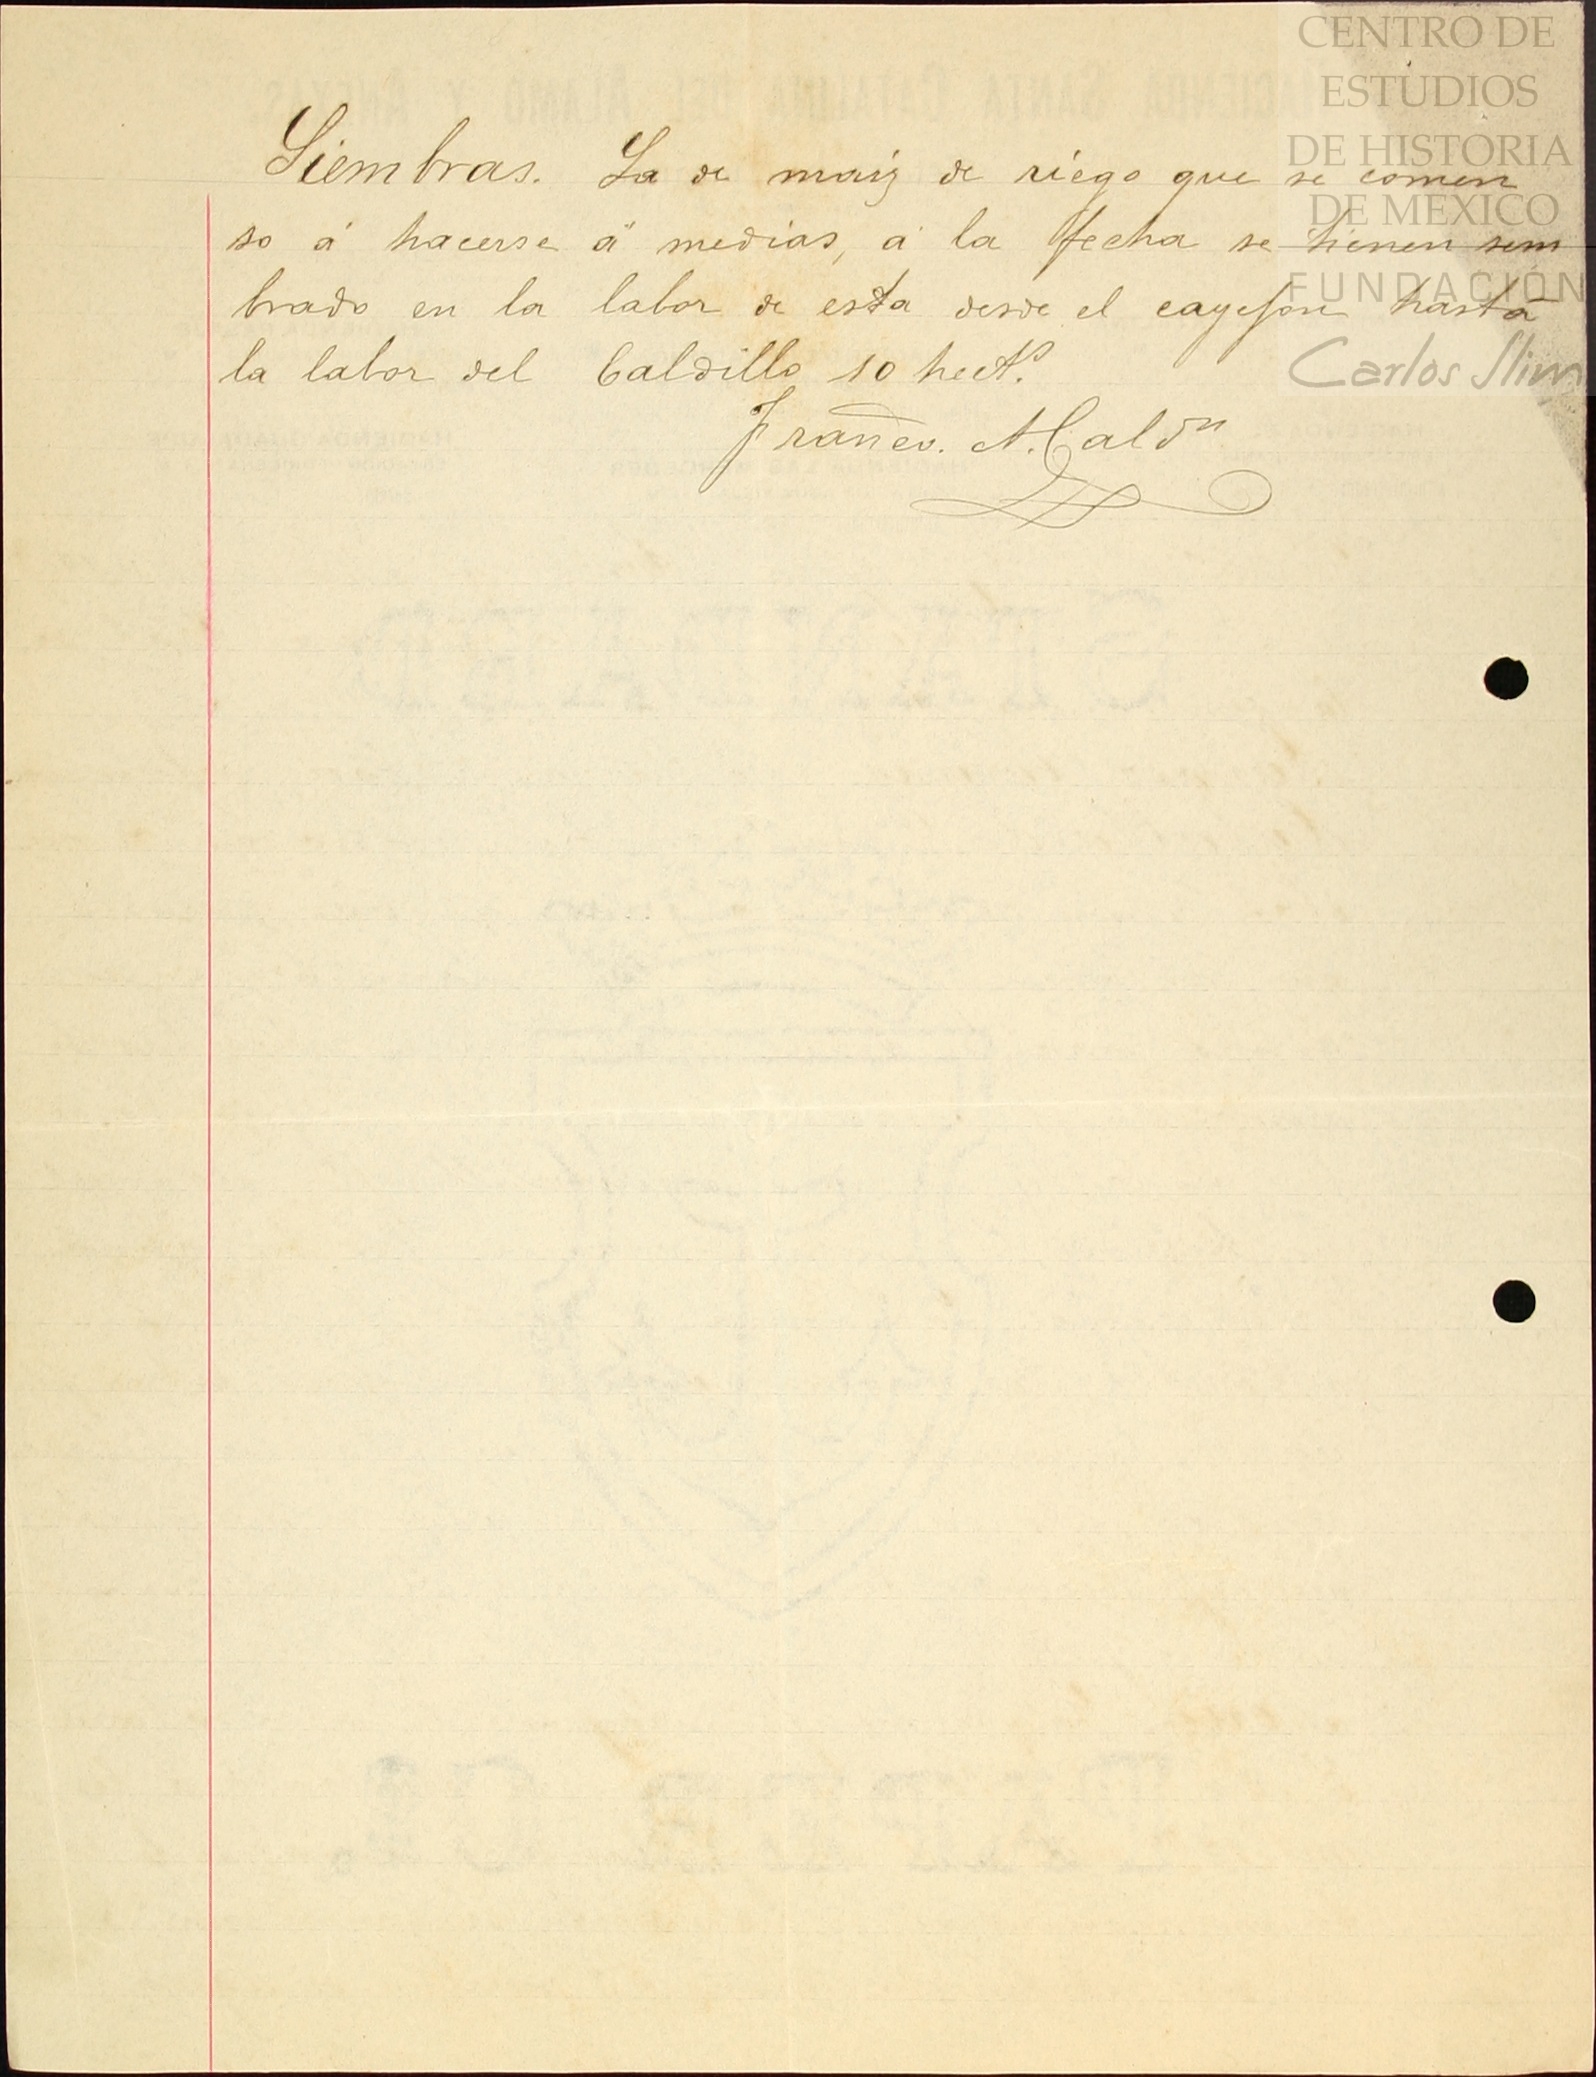 CENTRO DE
ESTUDIOS
DE HISTORIA
DE MÉXICO
FUNDACIÓN
Carlos Slim
Siembras. La de maiz de riego que se comen
so á hacerse á medias, á la fecha se tienen sem
brado en la labor de esta desde el cayejon hasta
la labor del Caldillo 10 hect.s
Franco. A. Caldn